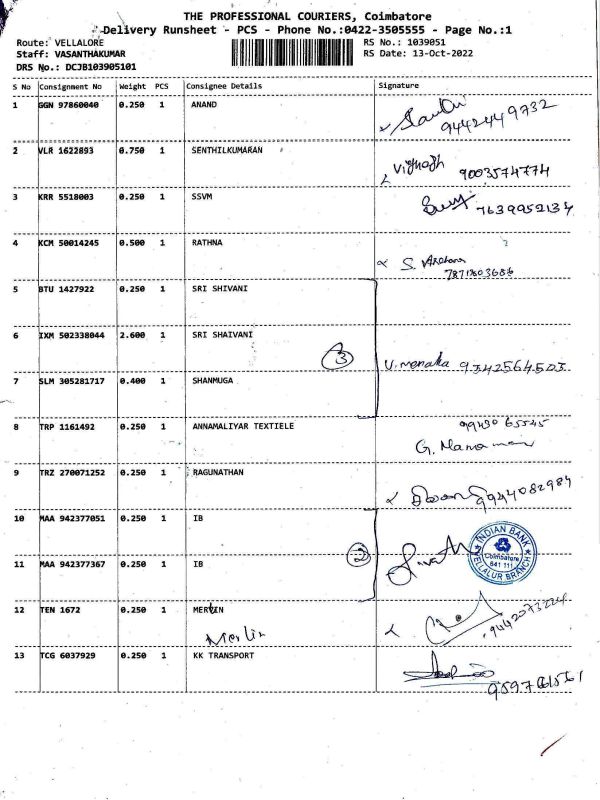 THE PROFESSIONAL COURIERS, Coimbatore
Delivery Runsheet - PCS - Phone No.:0422-3505555 - Page No.:1
Route: VELLALORE RS No.: 1039051
Staff: VASANTHAKUMAR RS Date: 13-Oct-2022
DRS No.: DCJB103905101
S No Consignment No Weight PCS Consignee Details Signature
1 GGN 97860040 0.250 1 ANAND
9442449732
2 VLR 1622893 0.750 1 SENTHILKUMARAN
Vignesh 9003574774
3 KRR 5518003 0.250 1 SSVM
7639952134
4 KCM 50014245 0.500 1 RATHNA
S. Archana
5 BTU 1427922 0.250 1 SRI SHIVANI
6 IXM 502338044 2.600 1 SRI SHAIVANI
3 V. menaka 9342564503
7 SLM 305281717 0.400 1 SHANMUGA
8 TRP 1161492 0.250 1 ANNAMALIYAR TEXTIELE
G.
9 TRZ 270071252 0.250 1 RAGUNATHAN
9944082984
10 MAA 942377051 0.250 1 IB
2
INDIAN BANK
Coimbatore
641 111
VELLALUR BRANCH
11 MAA 942377367 0.250 1 IB
12 TEN 1672 0.250 1 MERLIN
Merlin
9442073224
13 TCG 6037929 0.250 1 KK TRANSPORT